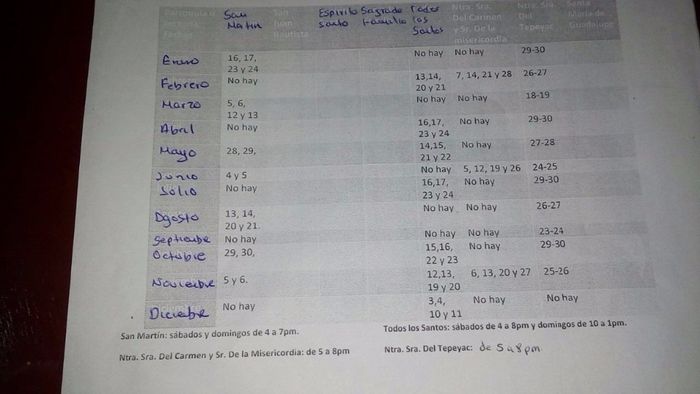 San Martin San Juan Bautista Espirito santo Sagrada Familia Todos los Santos Ntra. Sra. Del Carmen y Sr. De la misericordia Ntra. Sra. Del Tepeyac Santa Maria de Guadalupe
Enero 16, 17, 23 y 24 No hay No hay 29-30
Febrero No hay 13,14, 20 y 21 7, 14, 21 y 28 26-27
Marzo 5, 6, 12 y 13 No hay No hay 18-19
Abril No hay 16,17, 23 y 24 No hay 29-30
Mayo 28, 29, 14,15, 21 y 22 No hay 27-28
Junio 4 y 5 No hay 5, 12, 19 y 26 24-25
Julio No hay 16,17, 23 y 24 No hay 29-30
Agosto 13, 14, 20 y 21. No hay No hay 26-27
Septiembre No hay No hay No hay 23-24
Octubre 29, 30, 15,16, 22 y 23 No hay 29-30
Noviembre 5 y 6. 12,13, 19 y 20 6, 13, 20 y 27 25-26
Diciembre No hay 3,4, 10 y 11 No hay No hay
San Martín: sábados y domingos de 4 a 7pm. Todos los Santos: sábados de 4 a 8pm y domingos de 10 a 1pm.
Ntra. Sra. Del Carmen y Sr. De la Misericordia: de 5 a 8pm Ntra. Sra. Del Tepeyac: de 5 a 8pm.